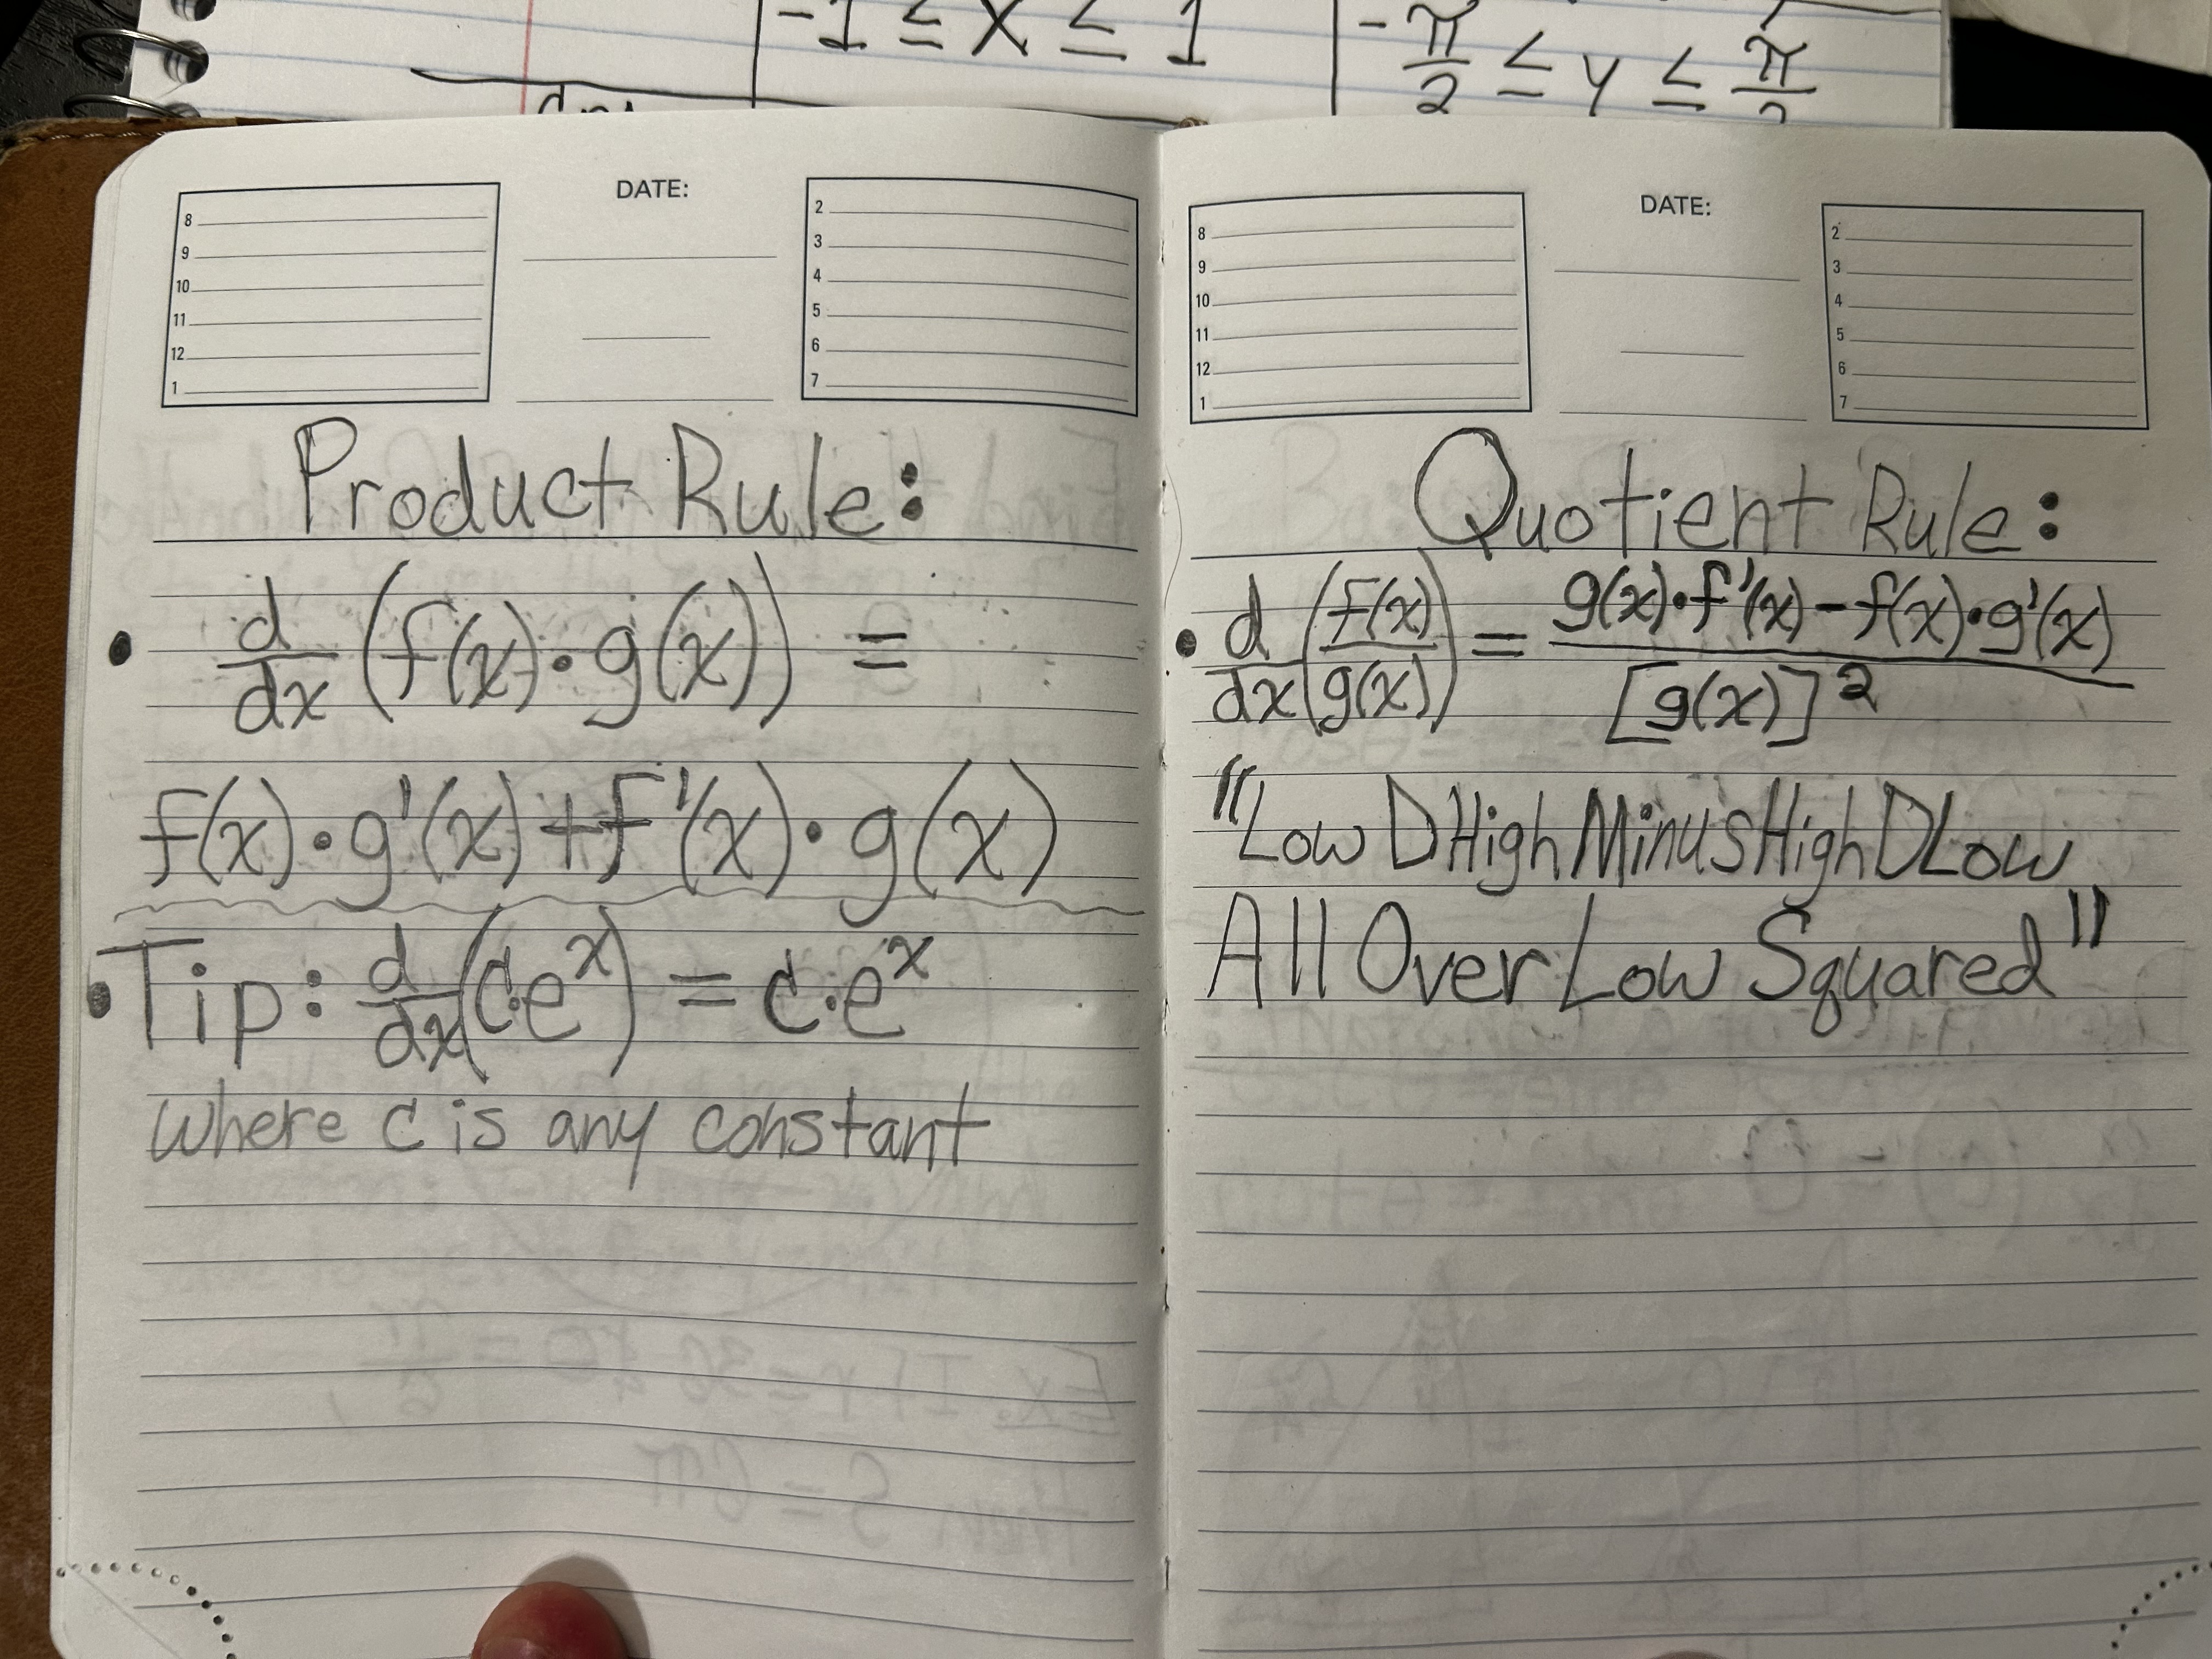 DATE:
8
9
10
11
12
1
2
3
4
5
6
7
Product Rule:
• d/dx (f(x)·g(x)) =
f(x)·g'(x)+f'(x)·g(x)
• Tip: d/dx(c·e^x) = c·e^x
where c is any constant
DATE:
8
9
10
11
12
1
2
3
4
5
6
7
Quotient Rule:
• d/dx (f(x)/g(x)) = g(x)·f'(x) - f(x)·g'(x) / [g(x)]²
"Low DHigh Minus High DLow
All Over Low Squared"
-1 ≤ x ≤ 1
-π/2 ≤ y ≤ π/2